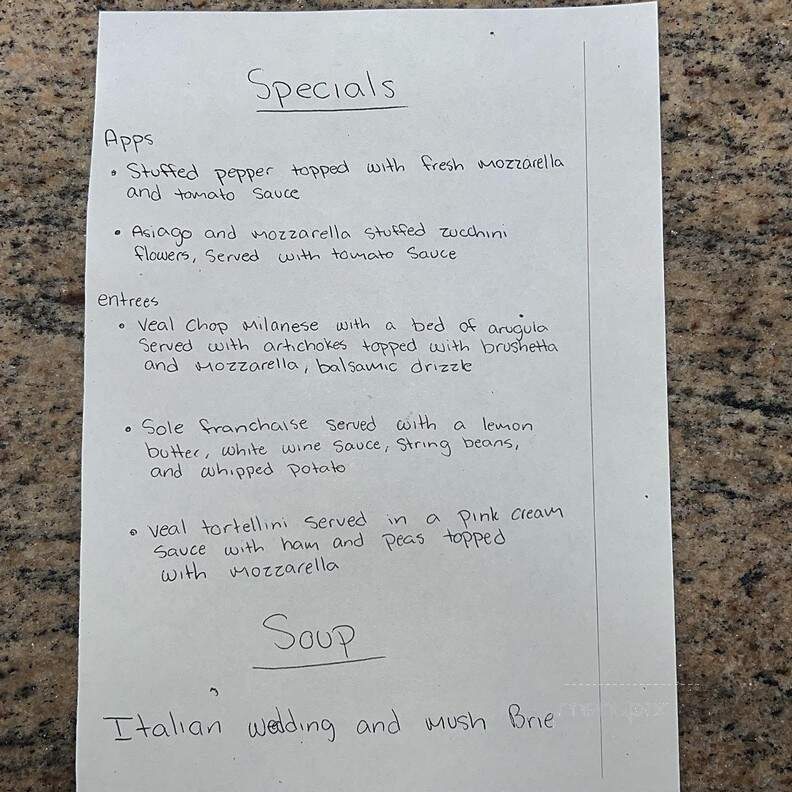 Specials
Apps
• Stuffed pepper topped with fresh mozzarella
and tomato sauce
• Asiago and mozzarella stuffed zucchini
flowers, served with tomato sauce
entrees
• Veal chop milanese with a bed of arugula
served with artichokes topped with brushetta
and mozzarella, balsamic drizzle
• Sole franchaise served with a lemon
butter, white wine sauce, string beans,
and whipped potato
• Veal tortellini served in a pink cream
sauce with ham and peas topped
with mozzarella
Soup
Italian wedding and mush Brie